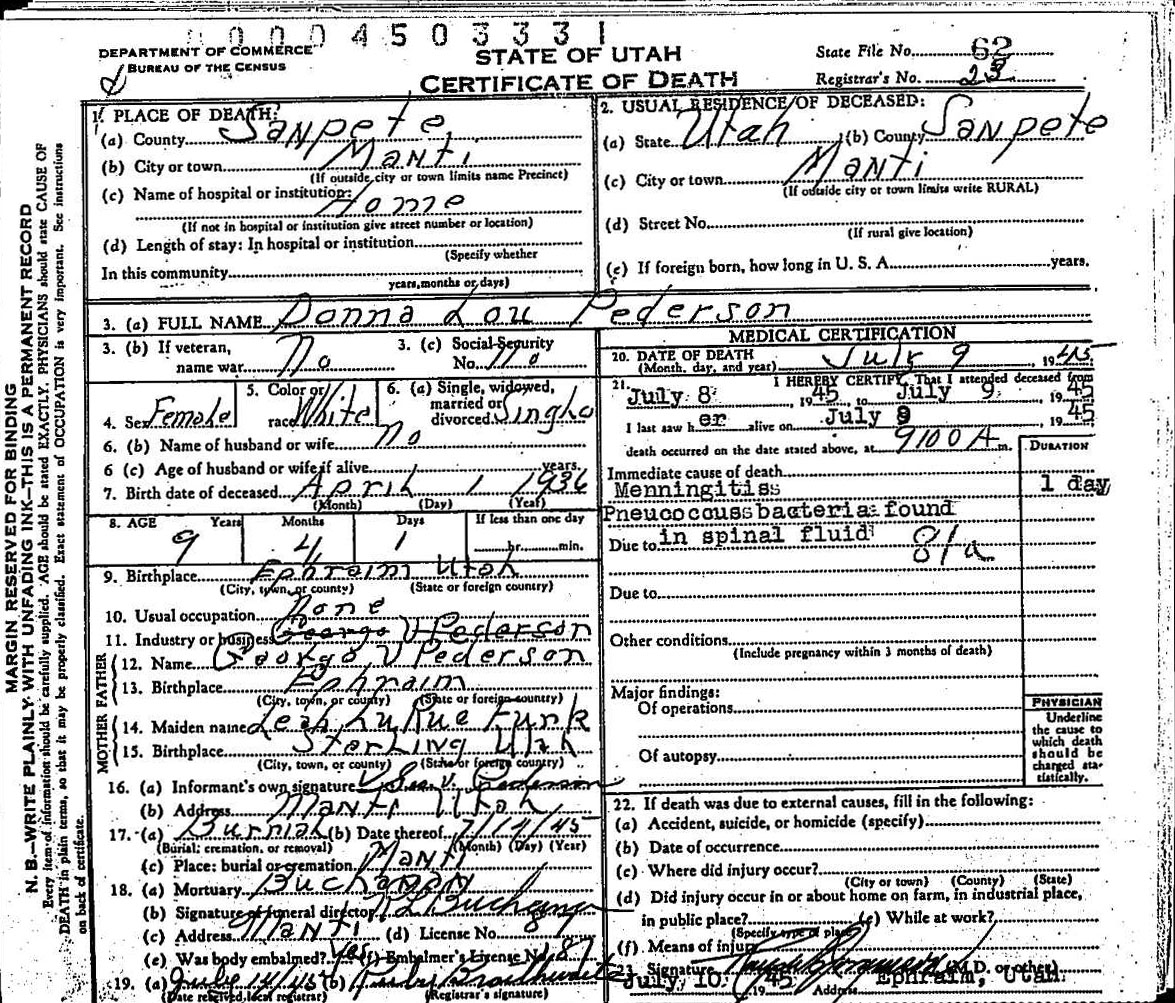 0000450 3331
DEPARTMENT OF COMMERCE
BUREAU OF THE CENSUS
STATE OF UTAH
CERTIFICATE OF DEATH
State File No. 62
Registrar's No. 23
MARGIN RESERVED FOR BINDING
N. B.—WRITE PLAINLY WITH UNFADING INK—THIS IS A PERMANENT RECORD
Every item of information should be carefully supplied. AGE should be stated EXACTLY. PHYSICIANS should state CAUSE OF
DEATH in plain terms, so that it may be properly classified. Exact statement of OCCUPATION is very important. See instructions
on back of certificate.
1. PLACE OF DEATH:
(a) County Sanpete
(b) City or town Manti
(If outside city or town limits name Precinct)
(c) Name of hospital or institution:
Home
(If not in hospital or institution give street number or location)
(d) Length of stay: In hospital or institution
(Specify whether
In this community
years, months or days)
2. USUAL RESIDENCE OF DECEASED:
(a) State Utah (b) County Sanpete
(c) City or town Manti
(If outside city or town limits write RURAL)
(d) Street No.
(If rural give location)
(e) If foreign born, how long in U. S. A. years.
3. (a) FULL NAME Donna Lou Pederson
3. (b) If veteran,
name war No
3. (c) Social Security
No. No
4. Sex Female
5. Color or
race White
6. (a) Single, widowed,
married or
divorced Single
6. (b) Name of husband or wife no
6 (c) Age of husband or wife if alive years.
7. Birth date of deceased April 1 1936
(Month) (Day) (Year)
8. AGE Years Months Days If less than one day
9 4 1 hr. min.
9. Birthplace Ephraim Utah
(City, town, or county) (State or foreign country)
10. Usual occupation None
11. Industry or business George V Pederson
FATHER
12. Name George V Pederson
13. Birthplace Ephraim
(City, town, or county) (State or foreign country)
MOTHER
14. Maiden name Leah LaRue Funk
15. Birthplace Sterling Utah
(City, town, or county) (State or foreign country)
16. (a) Informant's own signature Geo. V. Pederson
(b) Address Manti Utah
17. (a) Burial (b) Date thereof 7/14/45
(Burial; cremation, or removal) (Month) (Day) (Year)
(c) Place: burial or cremation Manti
18. (a) Mortuary Buchanan
(b) Signature of funeral director
(c) Address Manti (d) License No.
(e) Was body embalmed? Yes (f) Embalmer's License No.
19. (a) July 14/45 (b) Ruby Braithwaite
(Date received local registrar) (Registrar's signature)
MEDICAL CERTIFICATION
20. DATE OF DEATH July 9 1945
(Month, day, and year)
21. I HEREBY CERTIFY, That I attended deceased from
July 8 1945, to July 9 1945
I last saw her alive on July 9 1945
death occurred on the date stated above, at 9:00 A m.
DURATION
Immediate cause of death
Menningitiss 1 day
Pneucocouss bacteria found
Due to in spinal fluid 81a
Due to
Other conditions
(Include pregnancy within 3 months of death)
Major findings:
Of operations
Of autopsy
PHYSICIAN
Underline
the cause to
which death
should be
charged sta-
tistically.
22. If death was due to external causes, fill in the following:
(a) Accident, suicide, or homicide (specify)
(b) Date of occurrence
(c) Where did injury occur?
(City or town) (County) (State)
(d) Did injury occur in or about home on farm, in industrial place,
in public place? (e) While at work?
(Specify type of place)
(f) Means of injury
23. Signature (M.D. or other)
July 10 1945 Address Ephraim, Utah